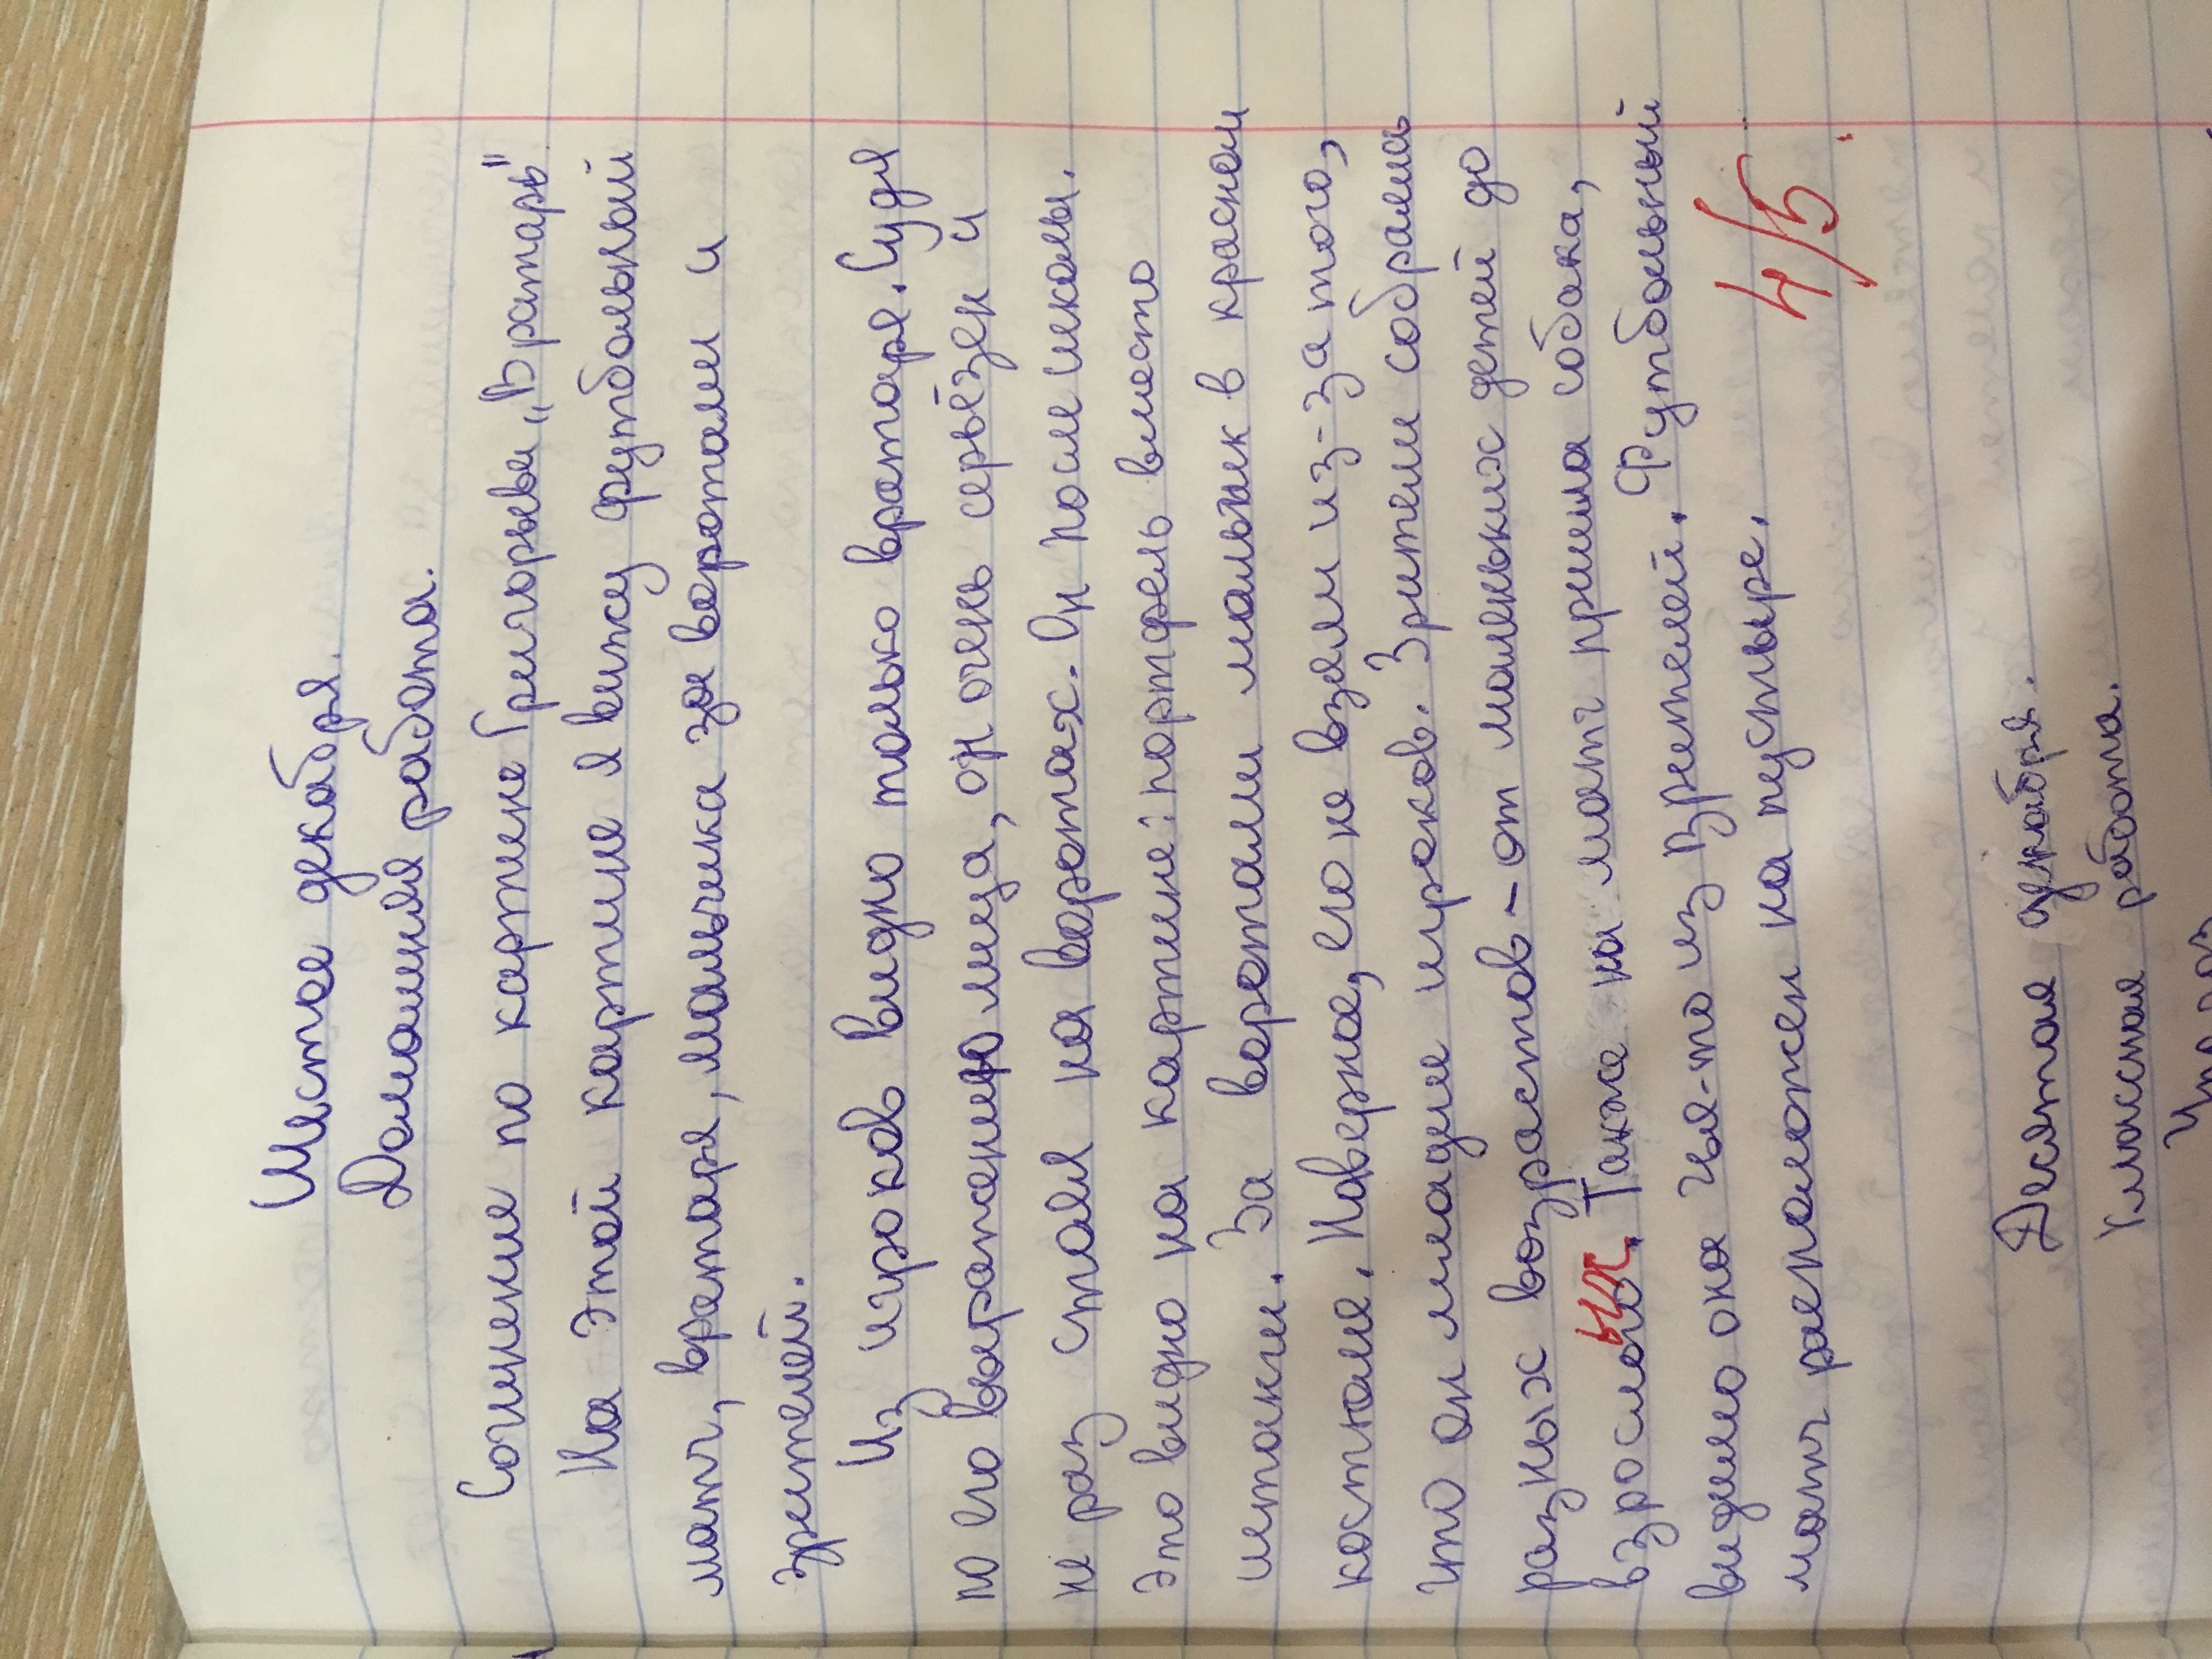 Шестое декабря.
Домашняя работа.
Сочинение по картине Григорьева „Вратарь"
На этой картине я вижу футбольный
матч, вратаря, мальчика за воротами и
зрителей.
Из игроков видно только вратаря. Судя
по его выражению лица, он очень серьёзен и
не раз стоял на воротах. Он после школы.
Это видно на картине: портфель вместо
штанги. За воротами мальчик в красном
костюме. Наверное, его не взяли из-за того,
что он младше игроков. Зрители собрались
разных возрастов - от маленьких детей до
взрослых. Также на матч пришла собака,
видимо она чья-то из зрителей. Футбольный
матч расположен на пустыре.
4/5
Десятое декабря.
Классная работа.